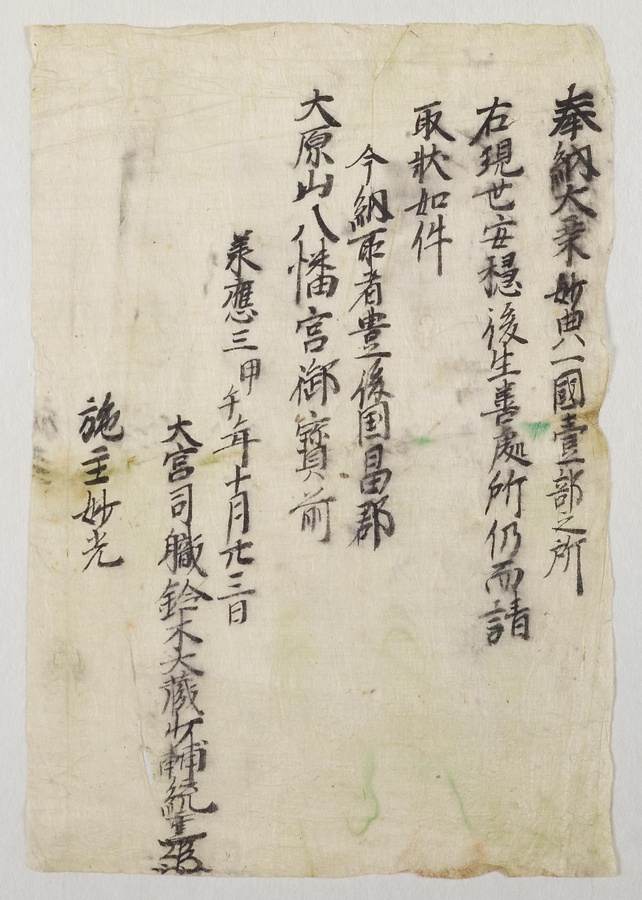 奉納大乗妙典一國壹部之所
右現世安穏後生善處所仍而請
取状如件
今納所者豊後国日田郡
大原山八幡宮御寳前
承應三甲午年十月廿三日
大宮司職鈴木大蔵少輔統
施主妙光